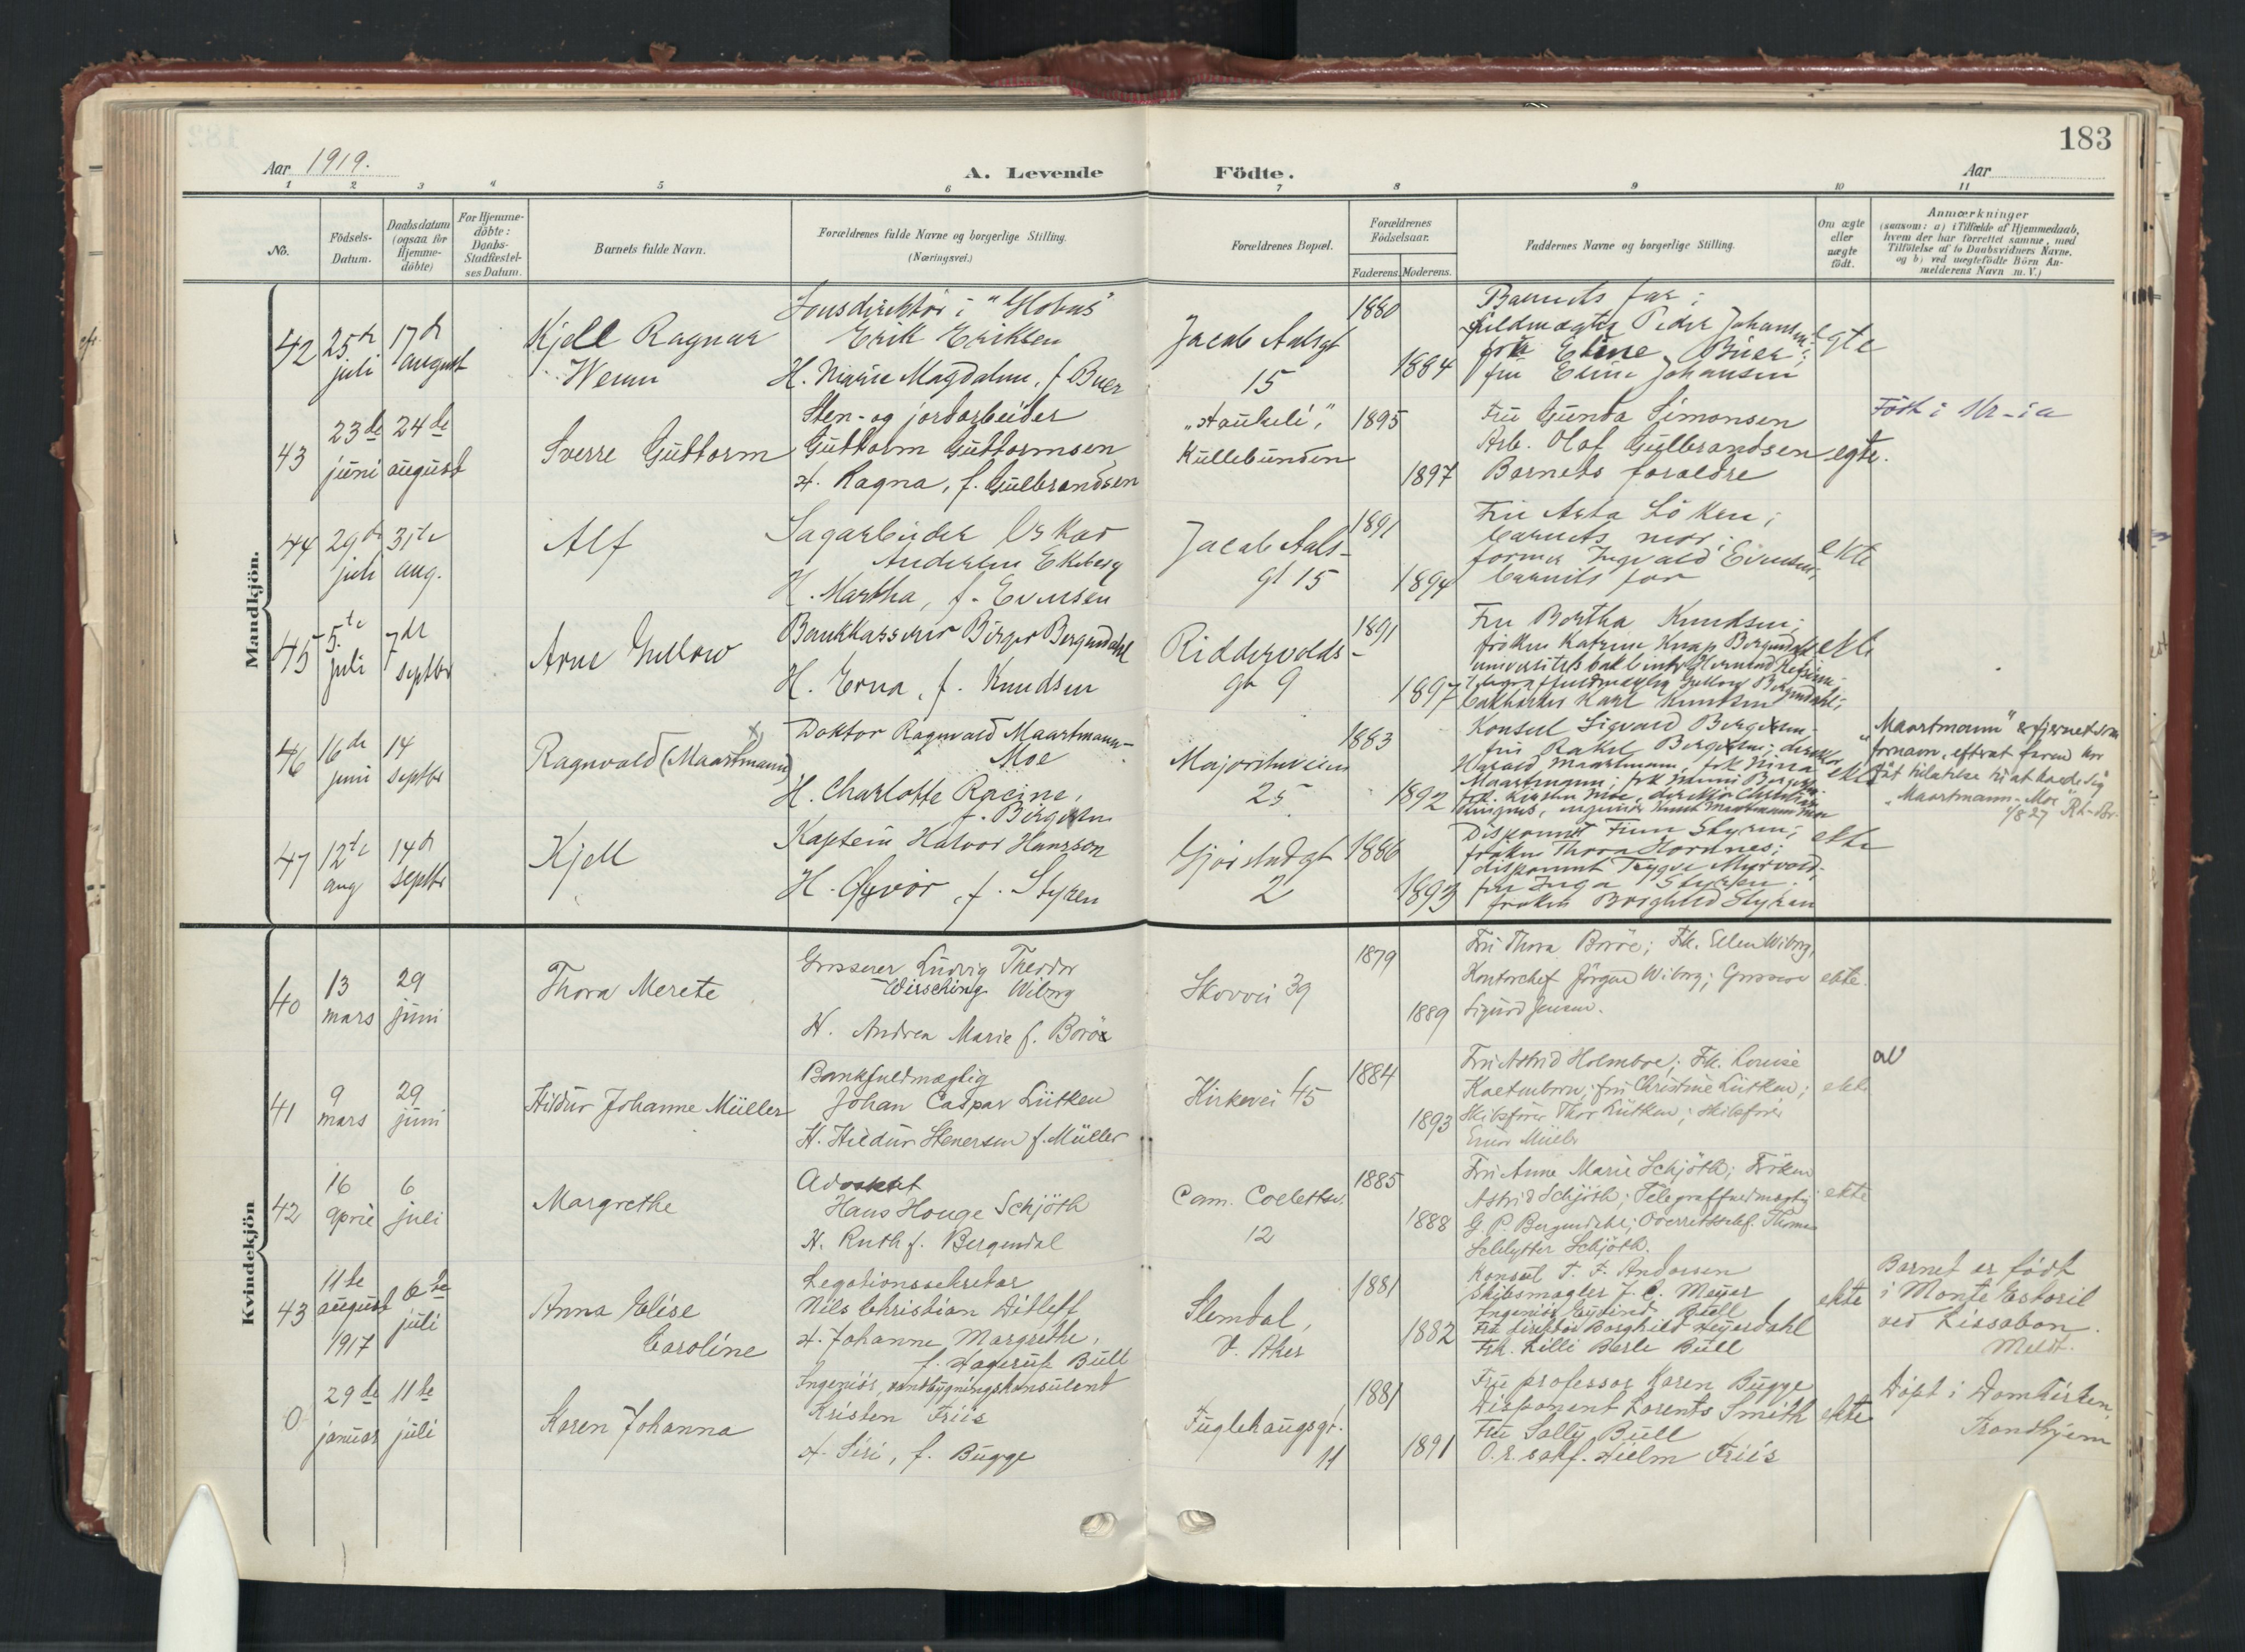 183
Aar 1919.
A. Levende Födte.
Aar
1 2 3 4 5 6 7 8 9 10 11
No.
Födsels-Datum.
Daabsdatum (ogsaa for Hjemme-döbte)
For Hjemme-döbte: Daabs-Stadfæstel-ses Datum.
Barnets fulde Navn.
Forældrenes fulde Navne og borgerlige Stilling.
(Næringsvei.)
Forældrenes Bopæl.
Forældrenes Födselsaar.
Faderens. Moderens.
Faddernes Navne og borgerlige Stilling.
Om ægte eller uægte födt.
Anmærkninger
(saasom: a) i Tilfælde af Hjemmedaab,
hvem der har forrettet samme, med
Tilföielse af to Daabsvidners Navne.
og b) ved uægtefödte Börn An-
melderens Navn m. V.)
Mandkjön.
42
25de juli
17de august
Kjell Ragnar
Erik Eriksen
H. Marie Magdalene, f. Buer
Jacob Aalsgt
15
1880
1884
Barnets far;
fru Eline Johansen
egte
43
23de juni
24de august
Sverre Guttorm
Sten- og jordarbeider
Guttorm Guttormsen
H. Ragna, f. Gulbrandsen
"Haukeli",
Kullebunden
1895
1897
Fru Gunda Simonsen
Arb. Olaf Gulbrandsen
Barnets foraldre
egte.
Född i Kr-ia
44
29de juli
31te aug.
Alf
Sagarbeider Oskar
Andersen Ekeberg
H. Martha, f. Evensen
Jacob Aals-
gt 15
1891
1894
Fru Asta Löken;
barnets mor;
Ingvald Evensen;
barnets far
ekte
45
5te juli
7de septbr
Arne Gullow
Bankkasserer Birger Bergendahl
H. Erna, f. Knudsen
Riddervolds-
gt 9
1891
1897
Fru Bertha Knudsen;
fröken Katrine Knap Bergendahl
Karl Knudsen
ekte
46
16de juni
14 septbr
Ragnvald (Maartmann)
Doktor Ragnvald Maartmann-
Moe
H. Charlotte Racine,
f. Birgesen
Majorstuveien
25
1883
1892
Konsul Sigvard
fru Rakel
Harald Maartmann, frk Nina
Maartmann;
ekte
"Maartmann" er fjernet som
fornavn, efterat faren har
fåt tilatelse til at kalde sig
"Maartmann-Moe"
47
12te aug
14de septbr
Kjell
Kaptein Halvor Hansson
H. f. Styren
2
1886
1893
Disponent Finn Styren;
fröken Thora Hornnes;
disponent Trygve
fru Inga Styren;
fröken Borghild Styren
ekte
Kvindekjön
40
13 mars
29 juni
Thora Merete
Grosserer Ludvig Theodor
Wirsching Wiborg
H. Andrea Marie f. Boröe
Skovvei 39
1879
1889
Fru Thora Boröe; Frk. Ellen Wiborg,
Kontorchef Jörgen Wiborg; Grosserer
Sigurd Jensen.
ekte.
41
9 mars
29 juni
Hildur Johanne Müller
Bankfuldmægtig
Johan Caspar Lütken
H. Hildur Stenersen f. Müller
Kirkevei 45
1884
1893
Fru Astrid Holmboe; Frk. Louise
Kaltenborn; fru Christine Lütken;
Skibsförer Thor Lütken; Skibsförer
Müller
ekte
42
16 april
6 juli
Margrethe
Advokat
Hans Houge Schjöth
H. Ruth f. Bergendal
Cam. Collettsv.
12
1885
1888
Fru Anne Marie Schjöth; Fröken
Astrid Schjöth; Telegraffuldmægtig
G. P. Bergendahl; Overretssakf. Thomas
Schlytter Schjöth.
ekte
43
11te august 1917
6te juli
Anna Elise
Caroline
Legationssekretær
Nils Christian Ditleff
H. Johanne Margrethe,
f. Hagerup Bull
Slemdal,
V. Aker
1881
1882
Konsul T. F. Andersen
Skibsmægler J. C. Meyer
Ingeniör Eyvind Bull
Fru direktör Borghild Heyerdahl
Frk. Lilli Berle Bull
ekte
Barnet er födt
i Monte Estoril
ved Lissabon.
0
29de januar
11te juli
Karen Johanna
Ingeniör, vandbygningskonsulent
Kristen Friis
H. Siri, f. Bugge
Fuglehaugsgt.
11
1881
1891
Fru professor Karen Bugge
Disponent Lorents Smith
Fru Sally Bull
O.r.sakf. Hielm Friis
ekte
Döpt i Domkirken,
Trondhjem